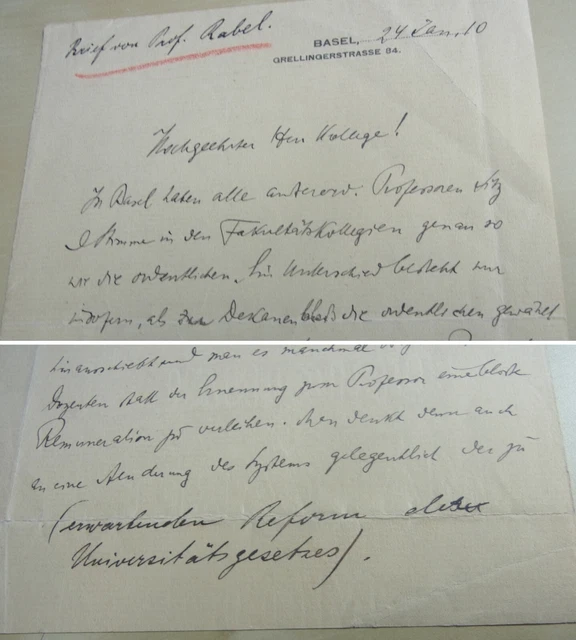 Brief von Prof. Rabel.
BASEL, 24 Jan. 10
GRELLINGERSTRASSE 84.
Hochgeehrter Herr Kollege!
In Basel haben alle auserord. Professoren Sitz
& Stimme in den Fakultätskollegien genau so
wie die ordentlichen. Ein Unterschied besteht nur
insofern, als zu Dekanen bloß die ordentlichen gewählt
hinausschiebt und man es manchmal
Dozenten statt der Ernennung zum Professor eine bloße
Remuneration zu verleihen. Man denkt denn auch
an eine Aenderung des Systems gelegentlich der zu
(erwartenden Reform des
Universitätsgesetzes).